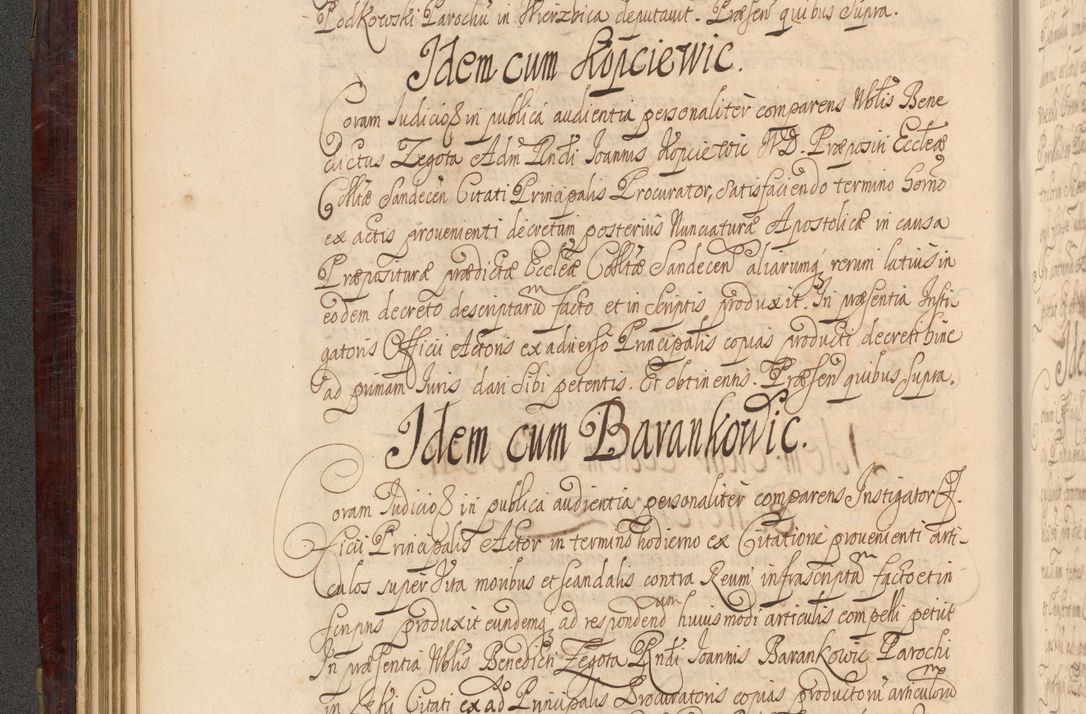 Podkowski Parochū in Wierzbica deputavit. Præsen quibus supra.
Idem cum Kopciewic.
Coram Iudicio et in publica audientia personaliter comparens Nblis Bene
dictus Zegota Adm Rndi Ioannis Kopciewic Præpositi Eccleæ
Collæ Sandecen Citati Principalis Procurator, satisfaciendo termino horno
ex actis provenienti decretum posterius Nunciaturæ Apostolicæ in causa
Præpositurę prædictæ Eccleæ Colltæ Sandecen aliarumq rerum latius in
eodem decreto descriptarum facto et in scriptis produxit. In præsentia Insti-
gatoris Officii Actoris ex adverso Principalis copias producti decreti hinc
ad primam Iuris dari sibi petentis. Et obtinentis. Præsen quibus supra.
Idem cum Barankowic.
Coram Iudicio et in publica audientia personaliter comparens Instigator Of-
ficii Principalis Actor in termino hodierno ex Citatione provenienti arti-
culos super vita moribus et scandalis contra Reum infrascriptum facto et in
scriptis produxit eundemq ad respondendum huiusmodi articulis compelli petiit
In præsentia Nblis Benedicti Zegota Rndi Ioannis Barankowic Parochi
in Citati et Principalis Procuratoris copias productorum articulorum